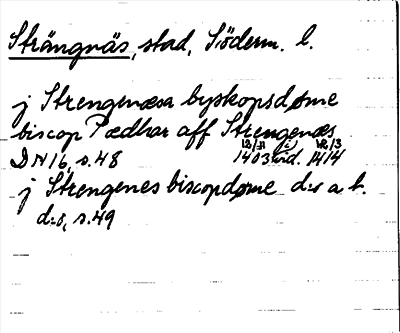 Strängnäs, stad, Söderm. l.
j Strengenæsa byskopsdøme
biscop Pædhar aff Strengenæs
DN16, s. 48 18/11 1403 i vid. 12/3 1414
j Strengenes biscopdøme d:o a b.
d:o, s. 49